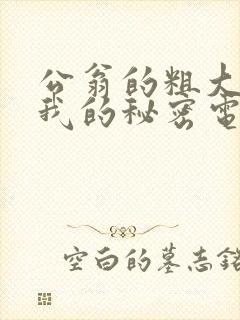 公翁的粗大
我的秘密电
空白的墓志铭